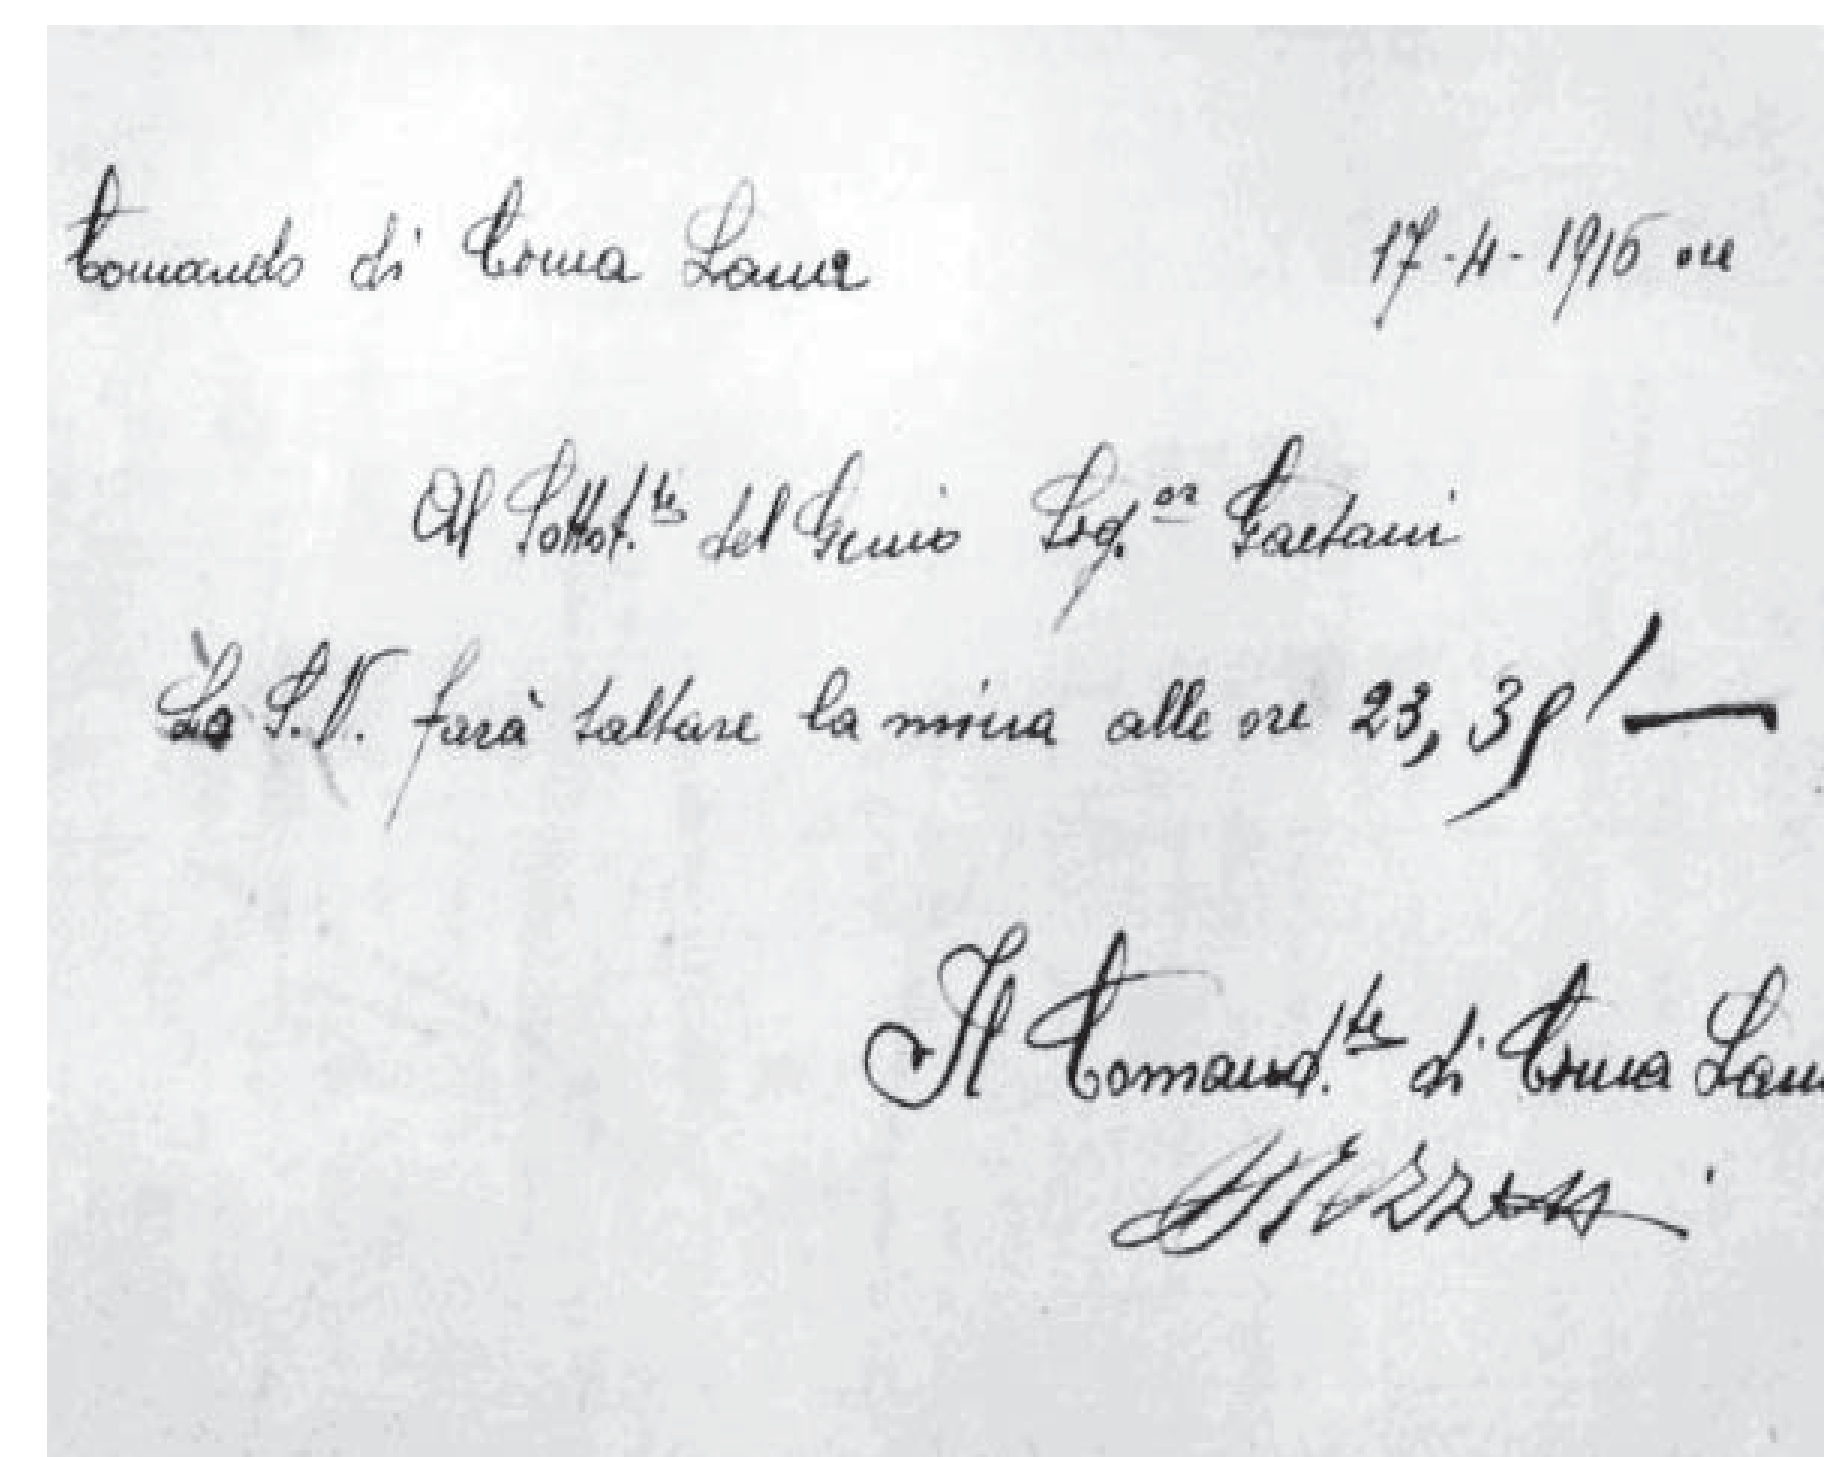 Comando di Cima Lana 17-4-1916 ore
Al Sottot.te del Genio Sig.or Gaetani
La S.V. farà saltare la mina alle ore 23, 35' —
Il Comand.te di Cima Lan